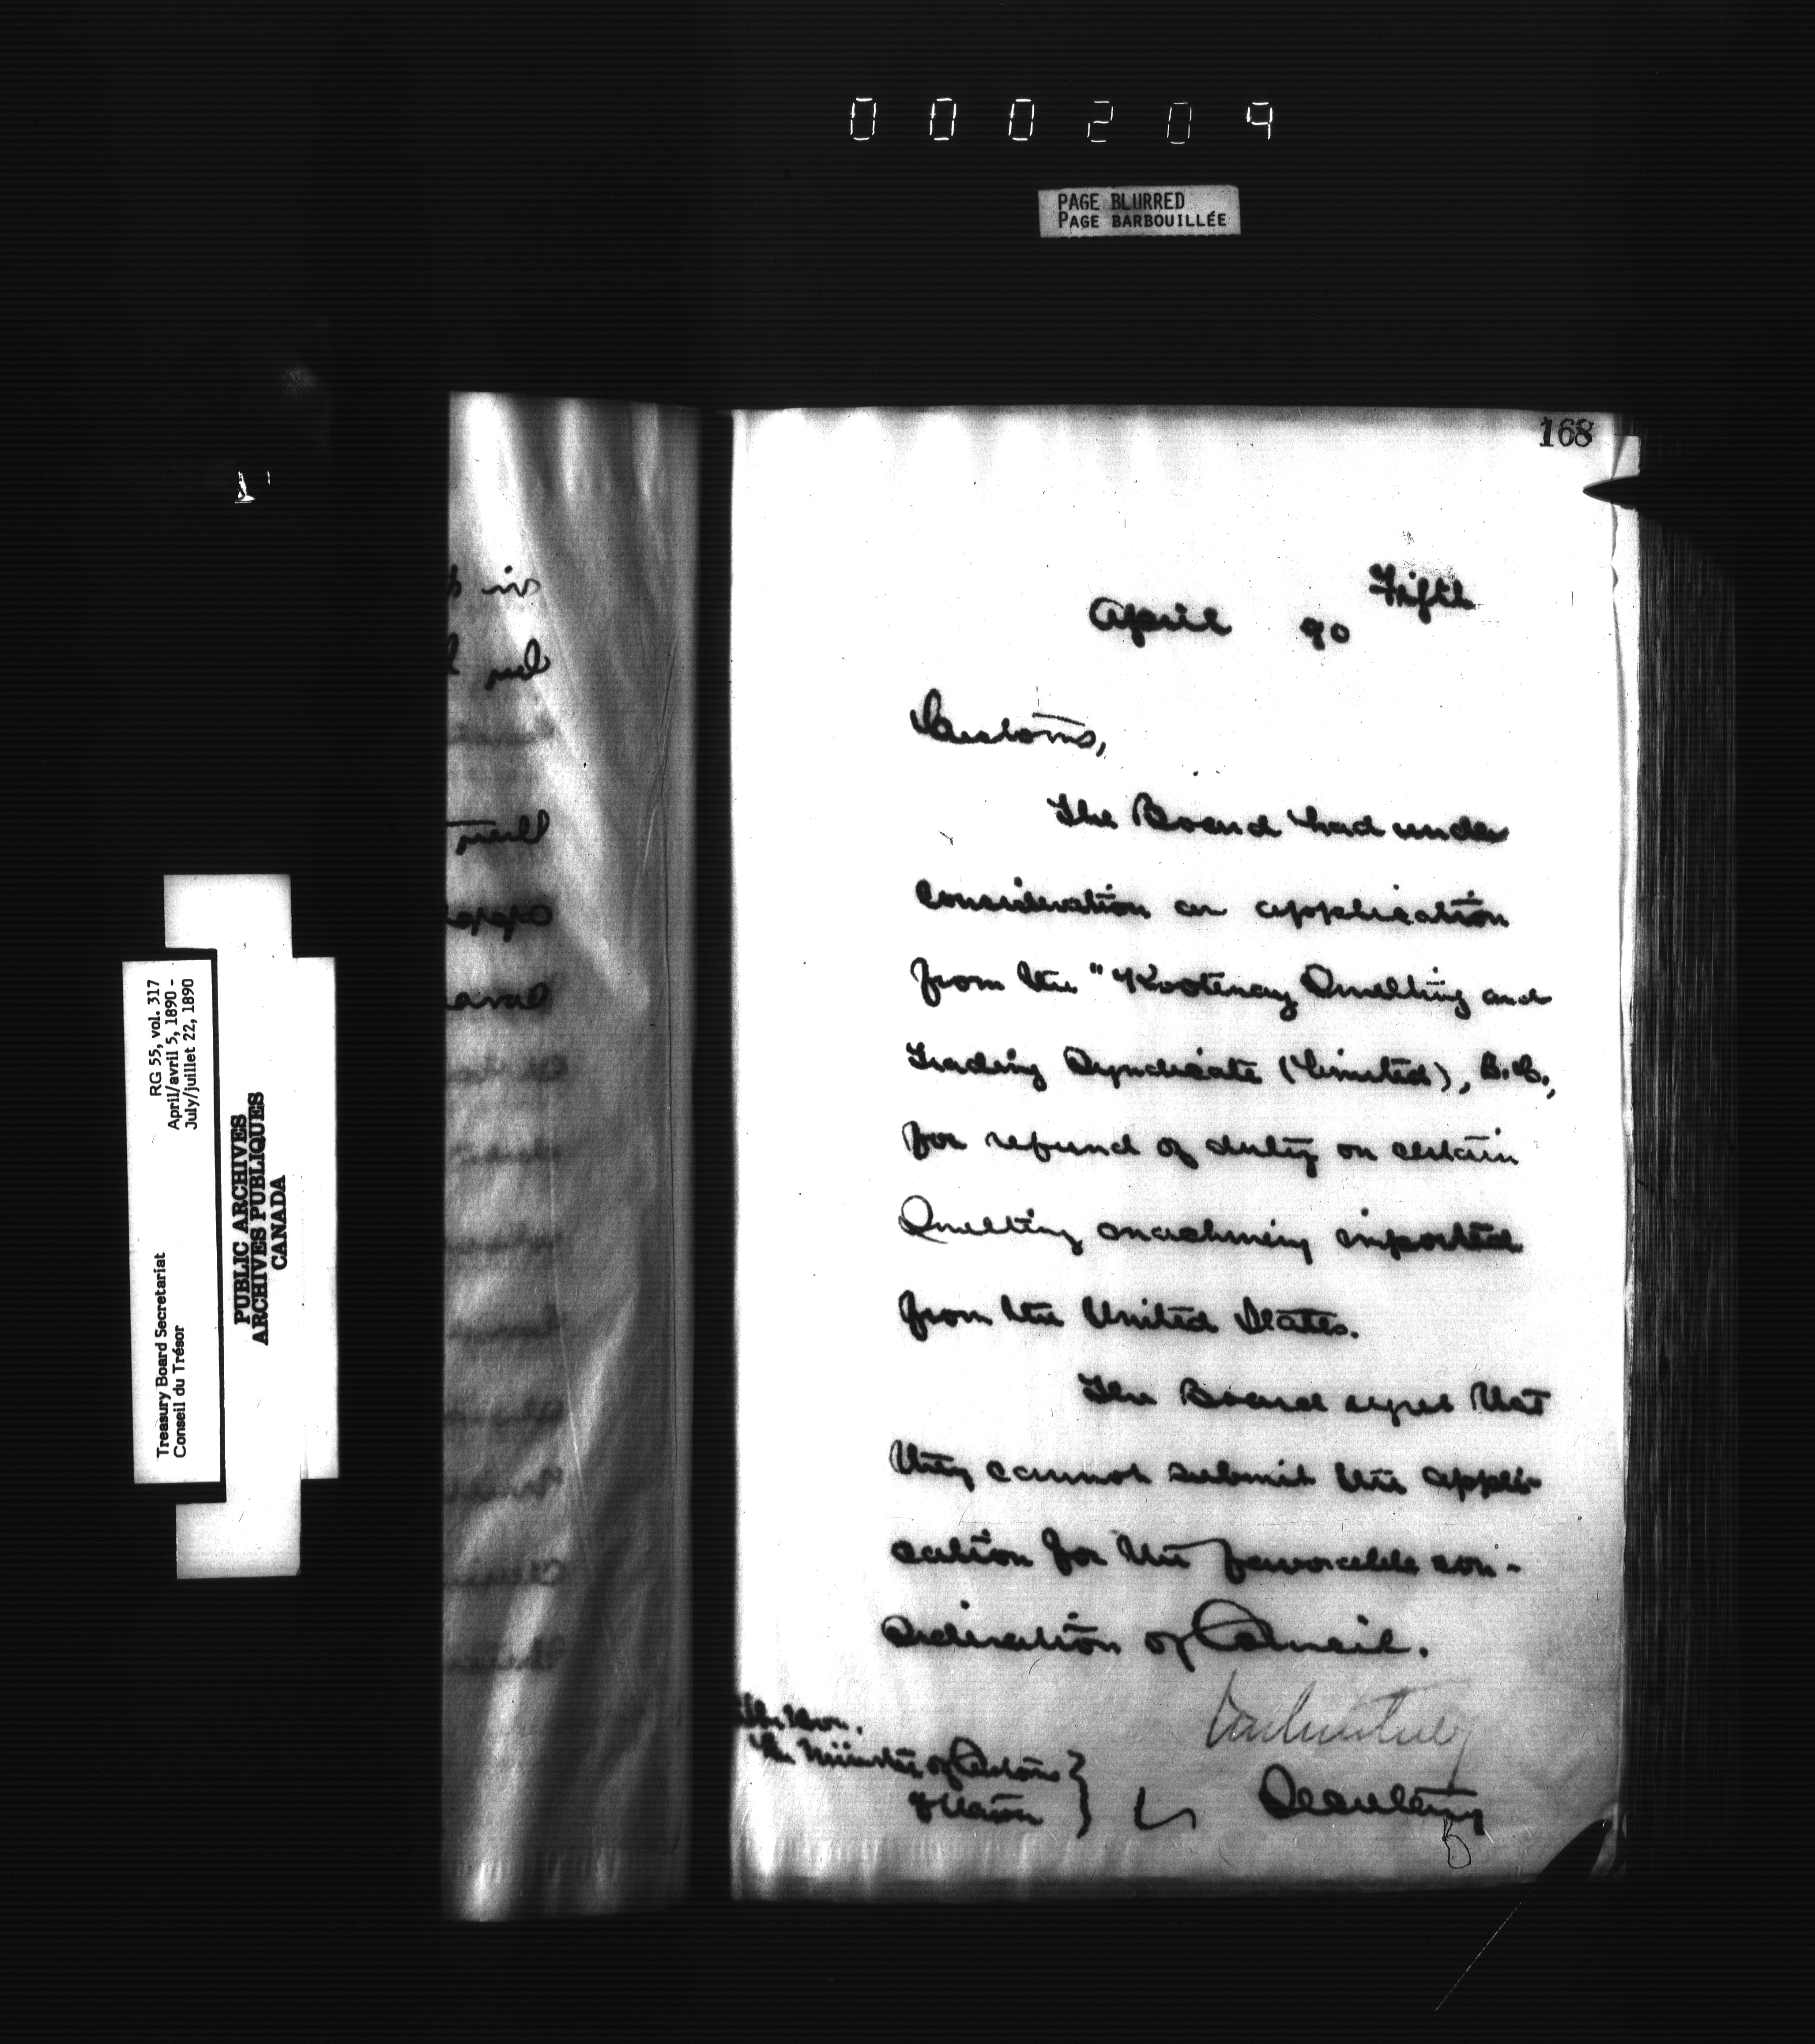 000209
PAGE BLURRED
PAGE BARBOUILLÉE
168
Fifth
April 90
Customs,
The Board had under
consideration an application
from the "Kootenay Smelting and
Trading Syndicate (Limited), B.C.,
for refund of duty on certain
Smelting machinery imported
from the United States.
The Board regret that
they cannot submit this appli-
cation for the favorable con-
sideration of Council.
The Hon.
The Minister of Customs
Ottawa
Secretary
RG 55, vol. 317
April/avril 5, 1890 -
July/juillet 22, 1890
Treasury Board Secretariat
Conseil du Trésor
PUBLIC ARCHIVES
ARCHIVES PUBLIQUES
CANADA